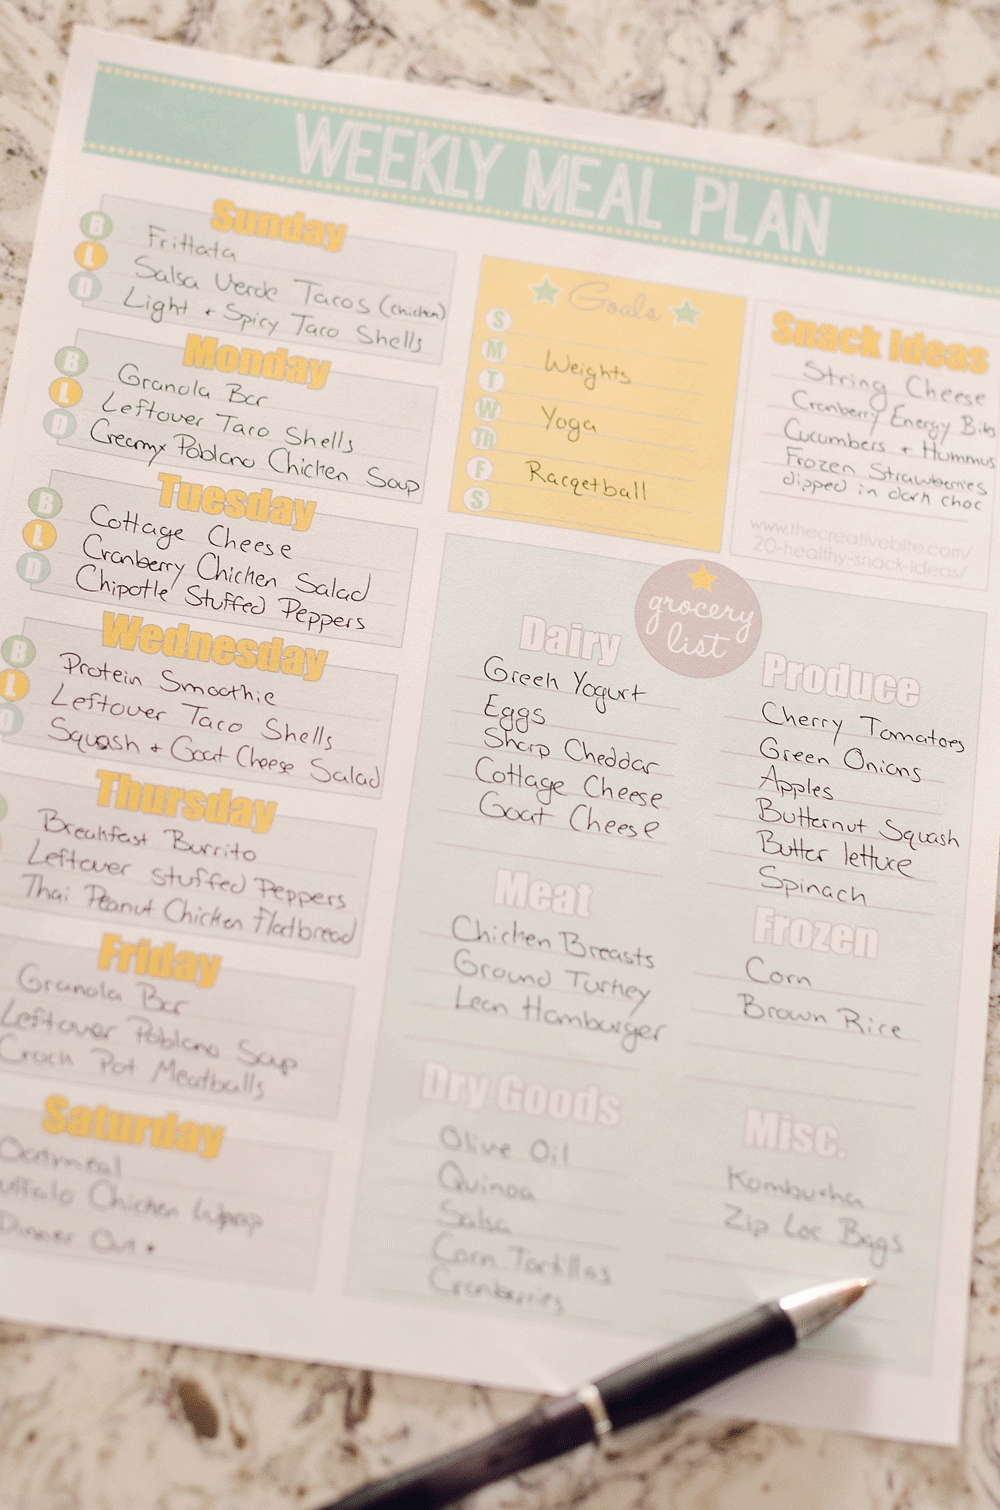 WEEKLY MEAL PLAN
Sunday
B Frittata
L Salsa Verde Tacos (chicken)
D Light + Spicy Taco Shells
Monday
B Granola Bar
L Leftover Taco Shells
D Creamy Poblano Chicken Soup
Tuesday
B Cottage Cheese
L Cranberry Chicken Salad
D Chipotle Stuffed Peppers
Wednesday
B Protein Smoothie
L Leftover Taco Shells
D Squash + Goat Cheese Salad
Thursday
Breakfast Burrito
Leftover Stuffed Peppers
Thai Peanut Chicken Flatbread
Friday
Granola Bar
Leftover Poblano Soup
Crock Pot Meatballs
Saturday
Oatmeal
uffalo Chicken Wrap
Dinner Out
Goals
S
M Weights
T
W Yoga
Th
F Racqetball
S
Snack Ideas
String Cheese
Cranberry Energy Bites
Cucumbers + Hummus
Frozen Strawberries
dipped in dark choc
www.thecreativebite.com/
20-healthy-snack-ideas/
grocery
list
Dairy
Greek Yogurt
Eggs
Sharp Cheddar
Cottage Cheese
Goat Cheese
Meat
Chicken Breasts
Ground Turkey
Lean Hamburger
Dry Goods
Olive Oil
Quinoa
Salsa
Corn Tortillas
Cranberries
Produce
Cherry Tomatoes
Green Onions
Apples
Butternut Squash
Butter lettuce
Spinach
Frozen
Corn
Brown Rice
Misc.
Kombucha
Zip Loc Bags